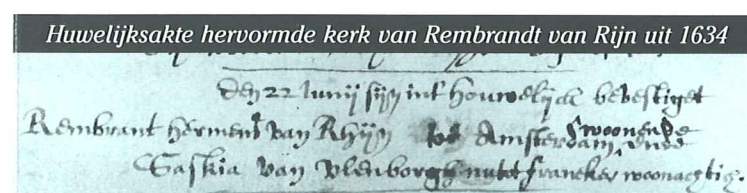 Huwelijksakte hervormde kerk van Rembrandt van Rijn uit 1634
den 22 Iunij sijn int houwelijck bevestiget
Rembrant Hermens van Rhijn tot Amsterdam woonende ende
Saskia van Vlenborgh nu tot franeker woonachtig.